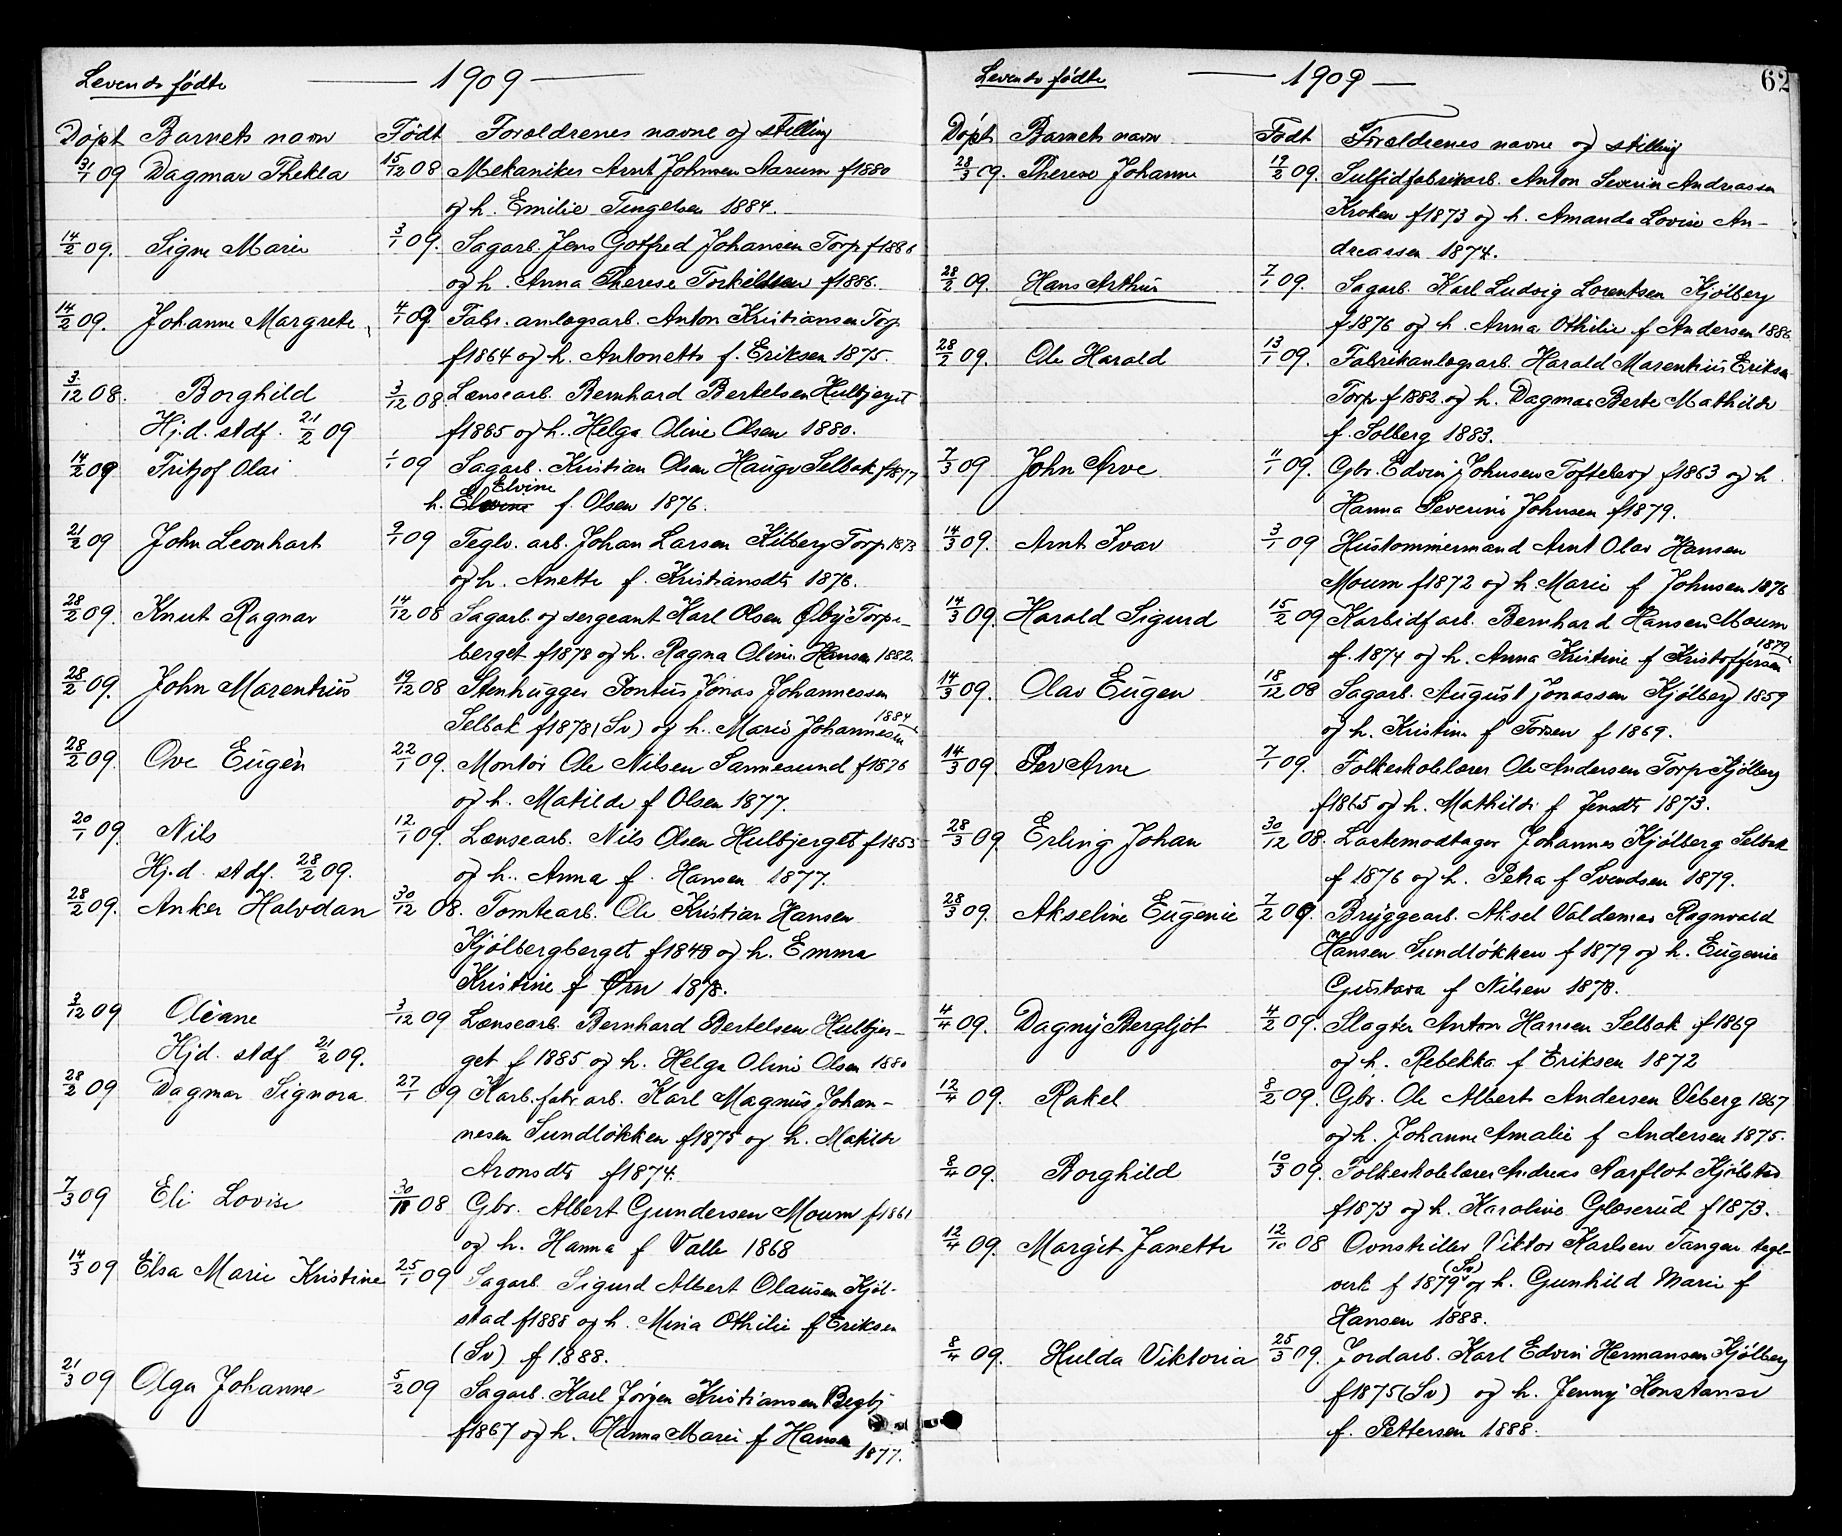 Levende fødte — 1909 —
Døpt Barnets navn Født Foraldrenes navne og stilling
31/1 09 Dagmar Thekla 15/12 08 Mekaniker Arnt Johnsen Aarum f1880
og h. Emilie Tingelsen 1884.
14/2 09. Signe Marie 3/1 09. Sagarb. Jens Gotfred Johansen Torp f1886
og h. Anna Therese Torkildsen f1886.
14/2 09. Johanne Margrete 4/1 09 Fabr. anlægsarb. Anton Kristiansen Torp
f1864 og h. Antonette f. Eriksen 1875.
3/12 08. Borghild 3/12 08. Lænsearb. Bernhard Bertelsen Hulbjerget
Hj.d. stdf. 21/2 09 f1885 og h. Helga Oline Olsen 1880.
14/2 09 Fritjof Olai 1/1 09 Sagarb. Kristian Olsen Hauge Selbak f1877
h. Elvine f. Olsen 1876.
21/2 09 John Leonhart 9/1 09 Teglv. arb. Johan Larsen Kilberg Torp 1873
og h. Anette f. Kristiansdtr 1876.
28/2 09. Knut Ragnar 14/12 08 Sagarb. og sergeant Karl Olsen Øby Torp-
berget f1878 og h. Ragna Oline Hansen 1882.
28/2 09. John Marentius 19/12 08 Stenhugger Pontus Jonas Johannessen
Selbak f1878 (Sv) og h. Marie Johannesen 1884
28/2 09. Ove Eugen 22/1 09. Montør Ole Nilsen Sannesund f1876
og h. Matilde f Olsen 1877.
20/1 09. Nils 12/1 09. Lænsearb. Nils Olsen Hulbjerget f1855
Hj.d. stdf. 28/2 09. og h. Anna f. Hansen 1877.
28/2 09. Anker Halvdan 30/12 08. Tomtearb. Ole Kristian Hansen
Kjølbergberget f1848 og h. Emma
Kristine f Ørn 1878.
3/12 09 Oleane 3/12 09 Lænsearb. Bernhard Bertelsen Hulbjer-
Hjd. stdf 21/2 09. get f 1885 og h. Helga Oline Olsen 1880
28/2 09 Dagmar Signora 27/1 09 Karb. fabr. arb. Karl Magnus Johan-
nesen Sundløkken f1875 og h. Matilde
Aronsdtr f1874.
7/3 09 Eli Lovise 30/11 08 Gbr. Albert Gundersen Moum f1861
og h. Hanna f Valle 1868
14/3 09 Elsa Marie Kristine 25/1 09 Sagarb. Sigurd Albert Olausen Kjøl-
stad f1888 og h. Mina Othilie f Eriksen
(Sv) f 1888.
21/3 09 Olga Johanne 5/2 09 Sagarb. Karl Jørgen Kristiansen Begby
f1867 og h. Hanna Marie f Hansen
1877.
Levende fødte — 1909 — 62
Døpt Barnets navn Født Foraldrenes navne og stilling
28/3 09. Therese Johanne 19/2 09. Sulfidfabrikarb. Anton Severin Andreassen
Kroken f1873 og h. Amanda Lovise An-
dreassen 1874.
28/2 09. Hans Arthur 7/1 09. Sagarb. Karl Ludvig Lorentsen Kjølberg
f1876 og h. Anna Othilie f Andersen 1886.
28/2 09. Ole Harald 13/1 09. Fabrikanlægsarb. Harald Marentius Eriksen
Torp f1882 og h. Dagmar Berte Mathilde
f. Solberg 1883.
7/3 09 John Arve 11/1 09. Gbr. Edvin Johnsen Tofteberg f1863 og h
Hanna Severine Johnsen f1879.
14/3 09. Arnt Ivar 3/1 09 Hustømmermand Arnt Olav Hansen
Moum f1872 og h. Marie f Johnsen 1876
14/3 09. Harald Sigurd 15/2 09 Karbidfarb. Bernhard Hansen Moum
f. 1874 og h. Anna Kristine f Kristoffersen 1879
14/3 09. Olav Eugen 18/12 08 Sagarb. August Jonassen Kjølberg 1859
og h. Kristine f Torsen f 1869.
14/3 09. Per Arne 7/1 09. Folkeskolelærer Ole Andersen Torp Kjølberg
f1865 og h. Mathilde f Jensdtr 1873.
28/3 09 Erling Johan 30/12 08. Lastemodtager Johannes Kjølberg Selbak
f 1876 og h. Petra f Svendsen 1879.
28/3 09. Akseline Eugenie 7/2 09. Bryggearb. Aksel Valdemar Ragnvald
Hansen Sundløkken f 1879 og h. Eugenie
Gustava f Nilsen 1878.
4/4 09. Dagny Bergljot 4/2 09. Slagter Anton Hansen Selbak f1869
og h. Rebekka f Eriksen 1872
12/4 09. Rakel 8/2 09. Gbr. Ole Albert Andersen Viberg 1867
og h. Johanne Amalie f Andersen 1875.
8/4 09. Borghild 10/3 09. Folkeskolelærer Andreas Aarflot Kjølstad
f1873 og h. Karoline Glæserud f1873.
12/4 09. Margit Janette 12/10 08 Ovnstiller Viktor Karlsen Tangen tegl-
verk f 1879 (Sv) og h. Gunhild Marie f
Hansen 1888.
8/4 09. Hulda Viktoria 25/3 09. Jordarb. Karl Edvin Hermansen Kjølberg
f1875 (Sv) og h. Jenny Konstanse
f. Pettersen 1888.